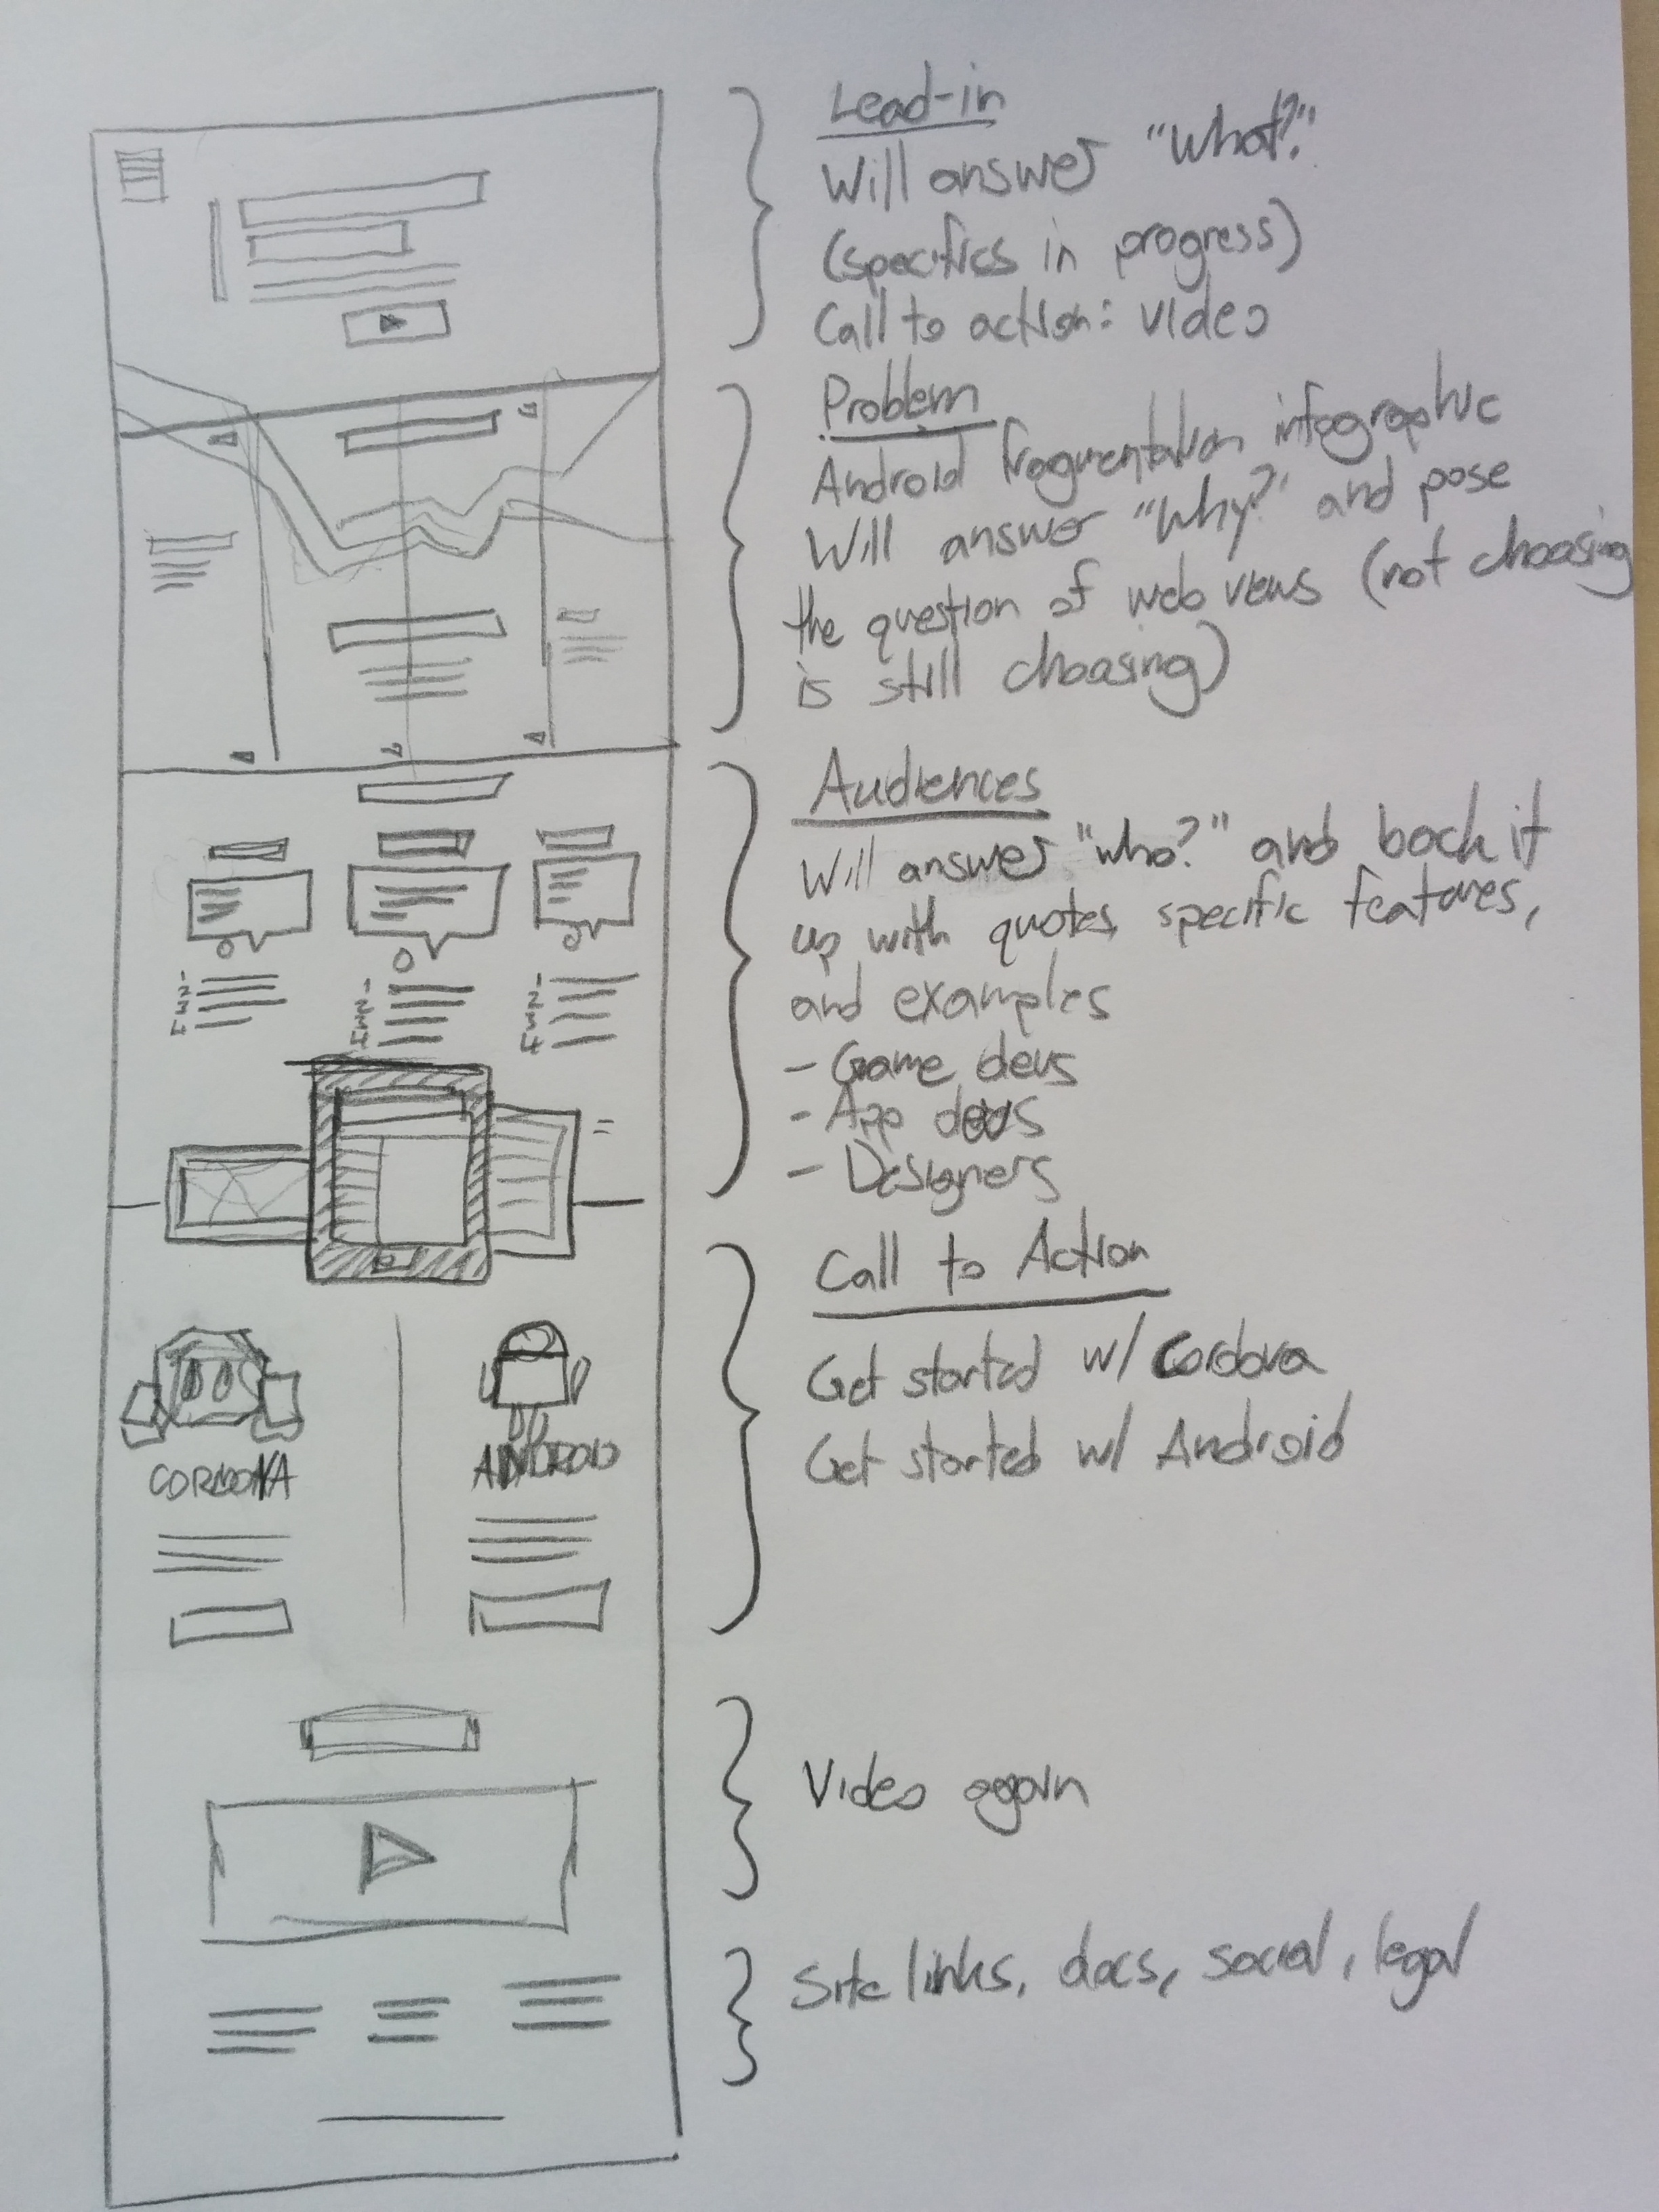 Lead-in
Will answer "what?"
(specifics in progress)
Call to action: video
Problem
Android fragmentation infographic
Will answer "Why?" and pose
the question of web views (not choosing
is still choosing)
Audiences
Will answer "who?" and back it
up with quotes, specific features,
and examples
- Game devs
- App devs
- Designers
1
2
3
4
1
2
3
4
Call to Action
Get started w/ Cordova
Get started w/ Android
CORDOVA
ANDROID
Video again
Site links, docs, social, legal